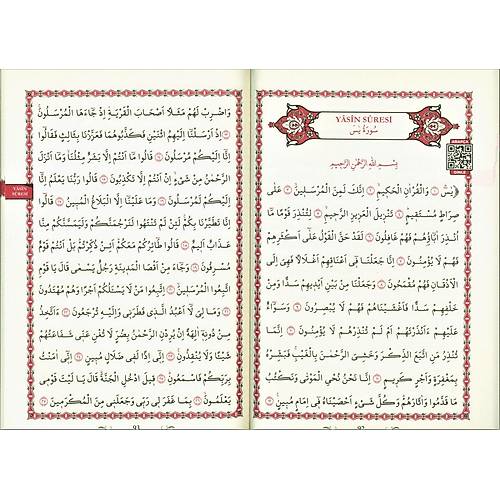 YÂSÎN SÛRESİ
سُورَةُ يٰسٓ
بِسْمِ اللّٰهِ الرَّحْمٰنِ الرَّحِيمِ
يٰسٓ ۝ وَالْقُرْاٰنِ الْحَكِيمِ ۝ اِنَّكَ لَمِنَ الْمُرْسَلِينَ ۝ عَلٰى
صِرَاطٍ مُسْتَقِيمٍ ۝ تَنْزِيلَ الْعَزِيزِ الرَّحِيمِ ۝ لِتُنْذِرَ قَوْمًا مَٓا
اُنْذِرَ اٰبَٓاؤُ۬هُمْ فَهُمْ غَافِلُونَ ۝ لَقَدْ حَقَّ الْقَوْلُ عَلٰٓى اَكْثَرِهِمْ
فَهُمْ لَا يُؤْمِنُونَ ۝ اِنَّا جَعَلْنَا فِٓي اَعْنَاقِهِمْ اَغْلَالًا فَهِيَ اِلَى
الْاَذْقَانِ فَهُمْ مُقْمَحُونَ ۝ وَجَعَلْنَا مِنْ بَيْنِ اَيْدِيهِمْ سَدًّا وَمِنْ
خَلْفِهِمْ سَدًّا فَاَغْشَيْنَاهُمْ فَهُمْ لَا يُبْصِرُونَ ۝ وَسَوَٓاءٌ
عَلَيْهِمْ ءَاَنْذَرْتَهُمْ اَمْ لَمْ تُنْذِرْهُمْ لَا يُؤْمِنُونَ ۝ اِنَّمَا
تُنْذِرُ مَنِ اتَّبَعَ الذِّكْرَ وَخَشِيَ الرَّحْمٰنَ بِالْغَيْبِ فَبَشِّرْهُ
بِمَغْفِرَةٍ وَاَجْرٍ كَرِيمٍ ۝ اِنَّا نَحْنُ نُحْيِ الْمَوْتٰى وَنَكْتُبُ
مَا قَدَّمُوا وَاٰثَارَهُمْ وَكُلَّ شَيْءٍ اَحْصَيْنَاهُ فِٓي اِمَامٍ مُبِينٍ ۝
YÂSÎN
SÛRESİ
وَاضْرِبْ لَهُمْ مَثَلًا اَصْحَابَ الْقَرْيَةِ اِذْ جَٓاءَهَا الْمُرْسَلُونَ
۝ اِذْ اَرْسَلْنَٓا اِلَيْهِمُ اثْنَيْنِ فَكَذَّبُوهُمَا فَعَزَّزْنَا بِثَالِثٍ فَقَالُٓوا
اِنَّٓا اِلَيْكُمْ مُرْسَلُونَ ۝ قَالُوا مَٓا اَنْتُمْ اِلَّا بَشَرٌ مِثْلُنَا وَمَٓا اَنْزَلَ
الرَّحْمٰنُ مِنْ شَيْءٍ اِنْ اَنْتُمْ اِلَّا تَكْذِبُونَ ۝ قَالُوا رَبُّنَا يَعْلَمُ اِنَّٓا
اِلَيْكُمْ لَمُرْسَلُونَ ۝ وَمَا عَلَيْنَٓا اِلَّا الْبَلَاغُ الْمُبِينُ ۝ قَالُٓوا
اِنَّا تَطَيَّرْنَا بِكُمْ لَئِنْ لَمْ تَنْتَهُوا لَنَرْجُمَنَّكُمْ وَلَيَمَسَّنَّكُمْ مِنَّا
عَذَابٌ اَلِيمٌ ۝ قَالُوا طَٓائِرُكُمْ مَعَكُمْ اَئِنْ ذُكِّرْتُمْ بَلْ اَنْتُمْ قَوْمٌ
مُسْرِفُونَ ۝ وَجَٓاءَ مِنْ اَقْصَا الْمَدِينَةِ رَجُلٌ يَسْعٰى قَالَ يَا قَوْمِ
اتَّبِعُوا الْمُرْسَلِينَ ۝ اِتَّبِعُوا مَنْ لَا يَسْـَٔلُكُمْ اَجْرًا وَهُمْ مُهْتَدُونَ
۝ وَمَا لِيَ لَٓا اَعْبُدُ الَّذِي فَطَرَنِي وَاِلَيْهِ تُرْجَعُونَ ۝ ءَاَتَّخِذُ
مِنْ دُونِهِٓ اٰلِهَةً اِنْ يُرِدْنِ الرَّحْمٰنُ بِضُرٍّ لَا تُغْنِ عَنِّي شَفَاعَتُهُمْ
شَيْـًٔا وَلَا يُنْقِذُونِ ۝ اِنِّٓي اِذًا لَفِي ضَلَالٍ مُبِينٍ ۝ اِنِّٓي اٰمَنْتُ
بِرَبِّكُمْ فَاسْمَعُونِ ۝ قِيلَ ادْخُلِ الْجَنَّةَ قَالَ يَا لَيْتَ قَوْمِي
يَعْلَمُونَ ۝ بِمَا غَفَرَ لِي رَبِّي وَجَعَلَنِي مِنَ الْمُكْرَمِينَ ۝